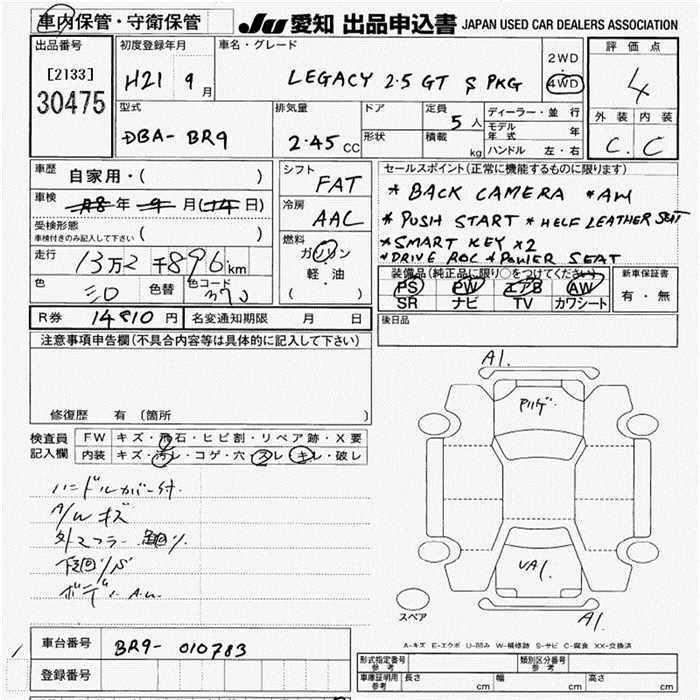 車内保管・守衛保管
JU 愛知 出品申込書 JAPAN USED CAR DEALERS ASSOCIATION
出品番号
[2133]
30475
初度登録年月
H21 9月
車名・グレード
LEGACY 2.5 GT S PKG
2WD
4WD
評価点
4
外装 内装
C C
型式
DBA-BR9
排気量
2.45 CC
ドア
形状
定員 5人
積載 kg
ディーラー・並行
モデル年式 年
ハンドル 左・右
車歴 自家用・( )
車検 年 月( 日)
受検形態
車検付きのみ記入して下さい ( )
走行 13万2千896km
色 色替 色コード
シフト FAT
冷房 AAC
燃料
ガソリン
軽・油
( )
セールスポイント(正常に機能するものに限ります)
* BACK CAMERA * AW
* PUSH START * HELF LEATHER SEIT
* SMART KEY X2
* DRIVE ROC * POWER SEAT
装備品(純正品に限り○をつけてください)
PS PW エアB AW
SR ナビ TV カワシート
新車保証書
有・無
R券 14810円 名変通知期限 月 日
後日品
注意事項申告欄(不具合内容等は具体的に記入して下さい)
修復歴 有 〔箇所 〕
検査員記入欄
FW キズ・飛石・ヒビ割・リペア跡・X要
内装 キズ・汚レ・コゲ・穴・スレ・キレ・破レ
ハンドルカバー付.
A/W キズ
外マフラー
ボデー
A1.
VA1.
A1.
スペア
A-キズ E-エクボ U-凹み W-補修跡 S-サビ C-腐食 XX-交換済
車台番号 BR9-010783
登録番号
形式指定番号 参考
類別区分番号 参考
車庫証明用 参考 長さ cm 幅 cm 高さ cm